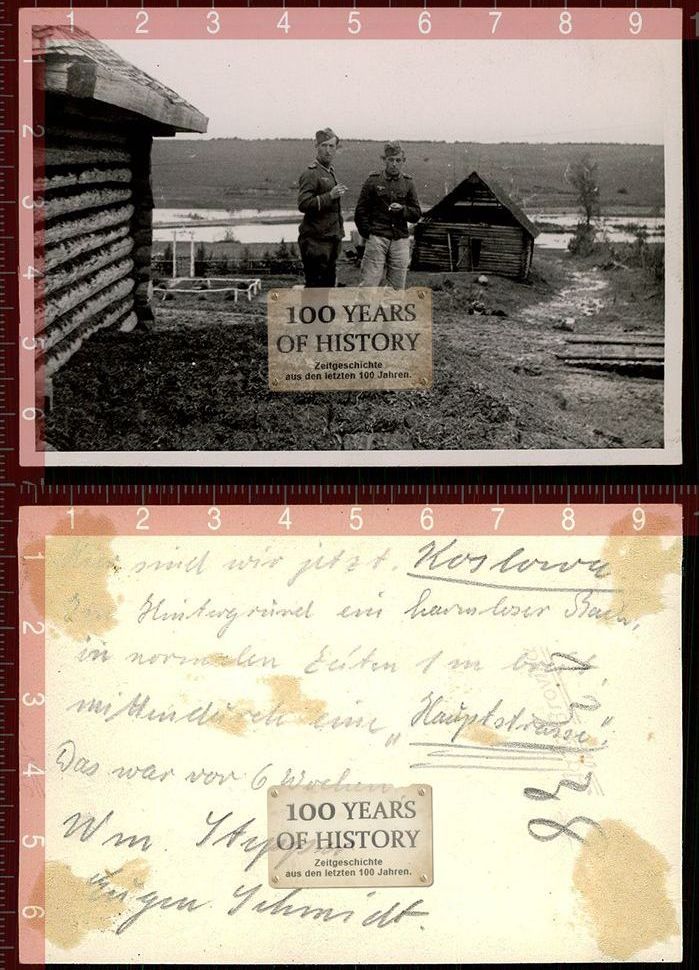 1 2 3 4 5 6 7 8 9
1
2
3
4
5
6
100 YEARS
OF HISTORY
Zeitgeschichte
aus den letzten 100 Jahren.
1 2 3 4 5 6 7 8 9
1
2
3
4
5
6
sind wir jetzt. Koslowa
Im Hintergrund ein harmloser Bach,
in normalen Zeiten 1 m breit,
mittendurch eine „Hauptstrasse".
Das war vor 6 Wochen.
Wm.
Schmidt.
100 YEARS
OF HISTORY
Zeitgeschichte
aus den letzten 100 Jahren.